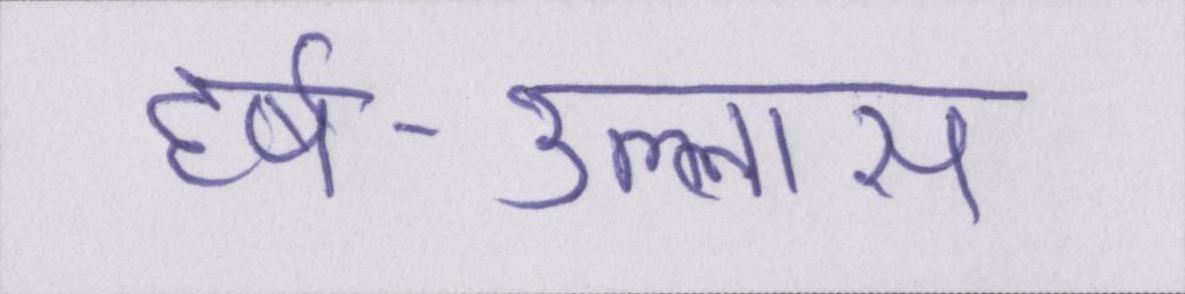 हर्ष-उल्लास